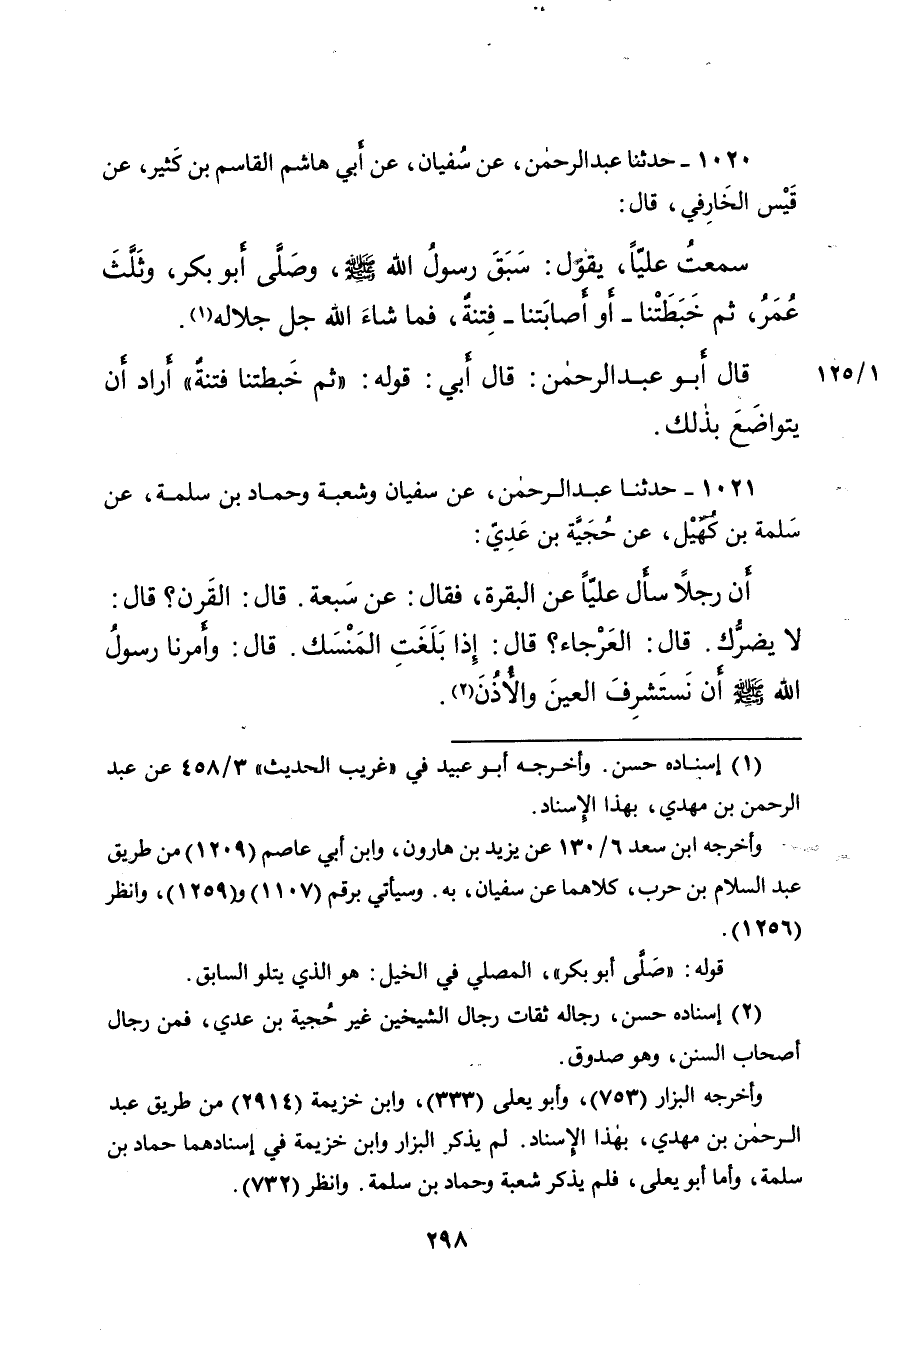 ١٠٢٠ - حدثنا عبدالرحمٰن، عن سُفيان، عن أَبي هاشم القاسم بن كَثير، عن
قَيْس الخَارِفي، قال:
سمعتُ عليّاً، يقول: سَبَقَ رسولُ الله ﷺ، وصَلَّى أَبو بكر، وثَلَّثَ
عُمَرُ، ثم خَبَطَتْنا - أَو أَصابَتنا - فِتنةٌ، فما شاءَ الله جل جلاله(١).
١٢٥/١ قال أَبو عبدالرحمٰن: قال أَبي: قوله: «ثم خَبطتنا فتنةٌ» أَراد أَن
يتواضَعَ بذٰلك.
١٠٢١ - حدثنا عبدالرحمٰن، عن سفيان وشعبة وحماد بن سلمة، عن
سَلمة بن كُهَيْل، عن حُجَيَّة بن عَدِيّ:
أَن رجلًا سأل عليّاً عن البقرة، فقال: عن سَبعة. قال: القَرن؟ قال:
لا يضرُّك. قال: العَرْجاء؟ قال: إِذا بَلَغَتِ المَنْسَك. قال: وأَمرنا رسولُ
الله ﷺ أَن نَستَشرِفَ العينَ والأُذُنَ(٢).
(١) إسناده حسن. وأخرجه أبو عبيد في «غريب الحديث» ٤٥٨/٣ عن عبد
الرحمن بن مهدي، بهذا الإسناد.
وأخرجه ابن سعد ١٣٠/٦ عن يزيد بن هارون، وابن أبي عاصم (١٢٠٩) من طريق
عبد السلام بن حرب، كلاهما عن سفيان، به. وسيأتي برقم (١١٠٧) و(١٢٥٩)، وانظر
(١٢٥٦).
قوله: «صَلَّى أبو بكر»، المصلي في الخيل: هو الذي يتلو السابق.
(٢) إسناده حسن، رجاله ثقات رجال الشيخين غير حُجية بن عدي، فمن رجال
أصحاب السنن، وهو صدوق.
وأخرجه البزار (٧٥٣)، وأبو يعلى (٣٣٣)، وابن خزيمة (٢٩١٤) من طريق عبد
الرحمٰن بن مهدي، بهٰذا الإسناد. لم يذكر البزار وابن خزيمة في إسنادهما حماد بن
سلمة، وأما أبو يعلى، فلم يذكر شعبة وحماد بن سلمة. وانظر (٧٣٢).
٢٩٨